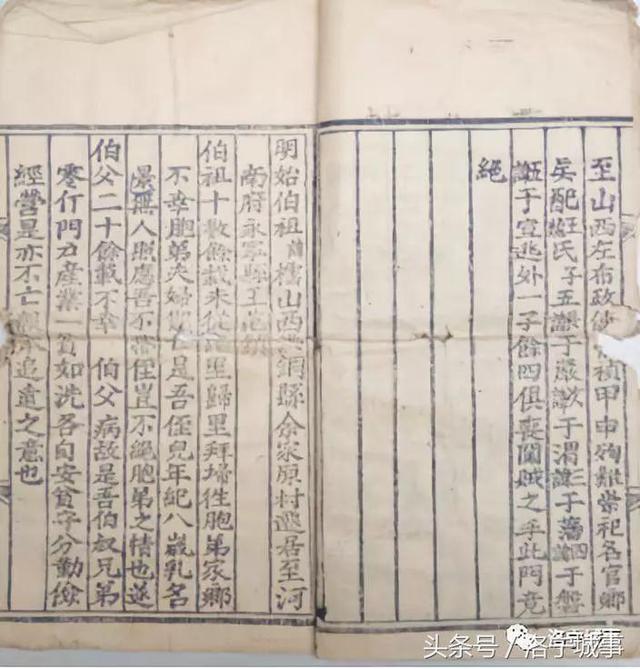 至山西左布政 禎甲申殉難崇祀名宦鄉
配汪氏子五諱于嚴次 于渭三 于藩四 于盤
五 于宣逃外一子餘四俱喪闖賊之手此門竟
絕
明始伯祖諱樗山西洪銅縣余家原村遷居至河
南府永寧縣王范鎮
伯祖十數餘載未從 里歸里拜掃徃胞弟家鄉
不幸胞弟夫婦 是吾侄兒年紀八歲乳名
晏無人照應吾不帶侄豈不絕胞弟之情也遂
伯父二十餘載不幸 伯父病故是吾伯叔兄弟
零仃門力產業一貧如洗各自安貧守分勤儉
經營是亦不亡 追遠之意也
头条号 / 洛宁城事